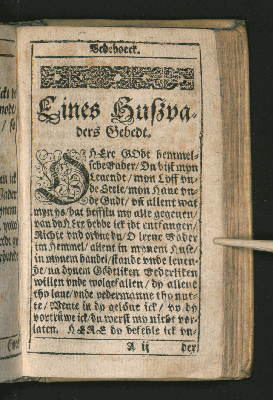 Bedeboeck.
Eines Hußva-
ders Gebedt.
O HEre GOdt hemmel-
sche Vader / Du bist myn
Levende / myn Lyff vn-
de Seele / myn Haue vn-
de Gudt / vñ allent wat
myn ys / dat heffstu my alle gegeuen /
van dy HEre hebbe ick idt entfangen /
Richte vnd ordne du / O leue Vader
im Hemmel / allent in mynem Huse /
in mynem handel / stande vnde leuen-
de / na dynem Gödtliken Vederliken
willen vnde wolgefallen / dy allene
tho laue / vnde yedermanne tho nut-
te / Wente in dy gelöue ick / vp dy
vortruwe ick / du werst my nicht vor-
laten. HERE dy befehle ick vn-
A ij
der